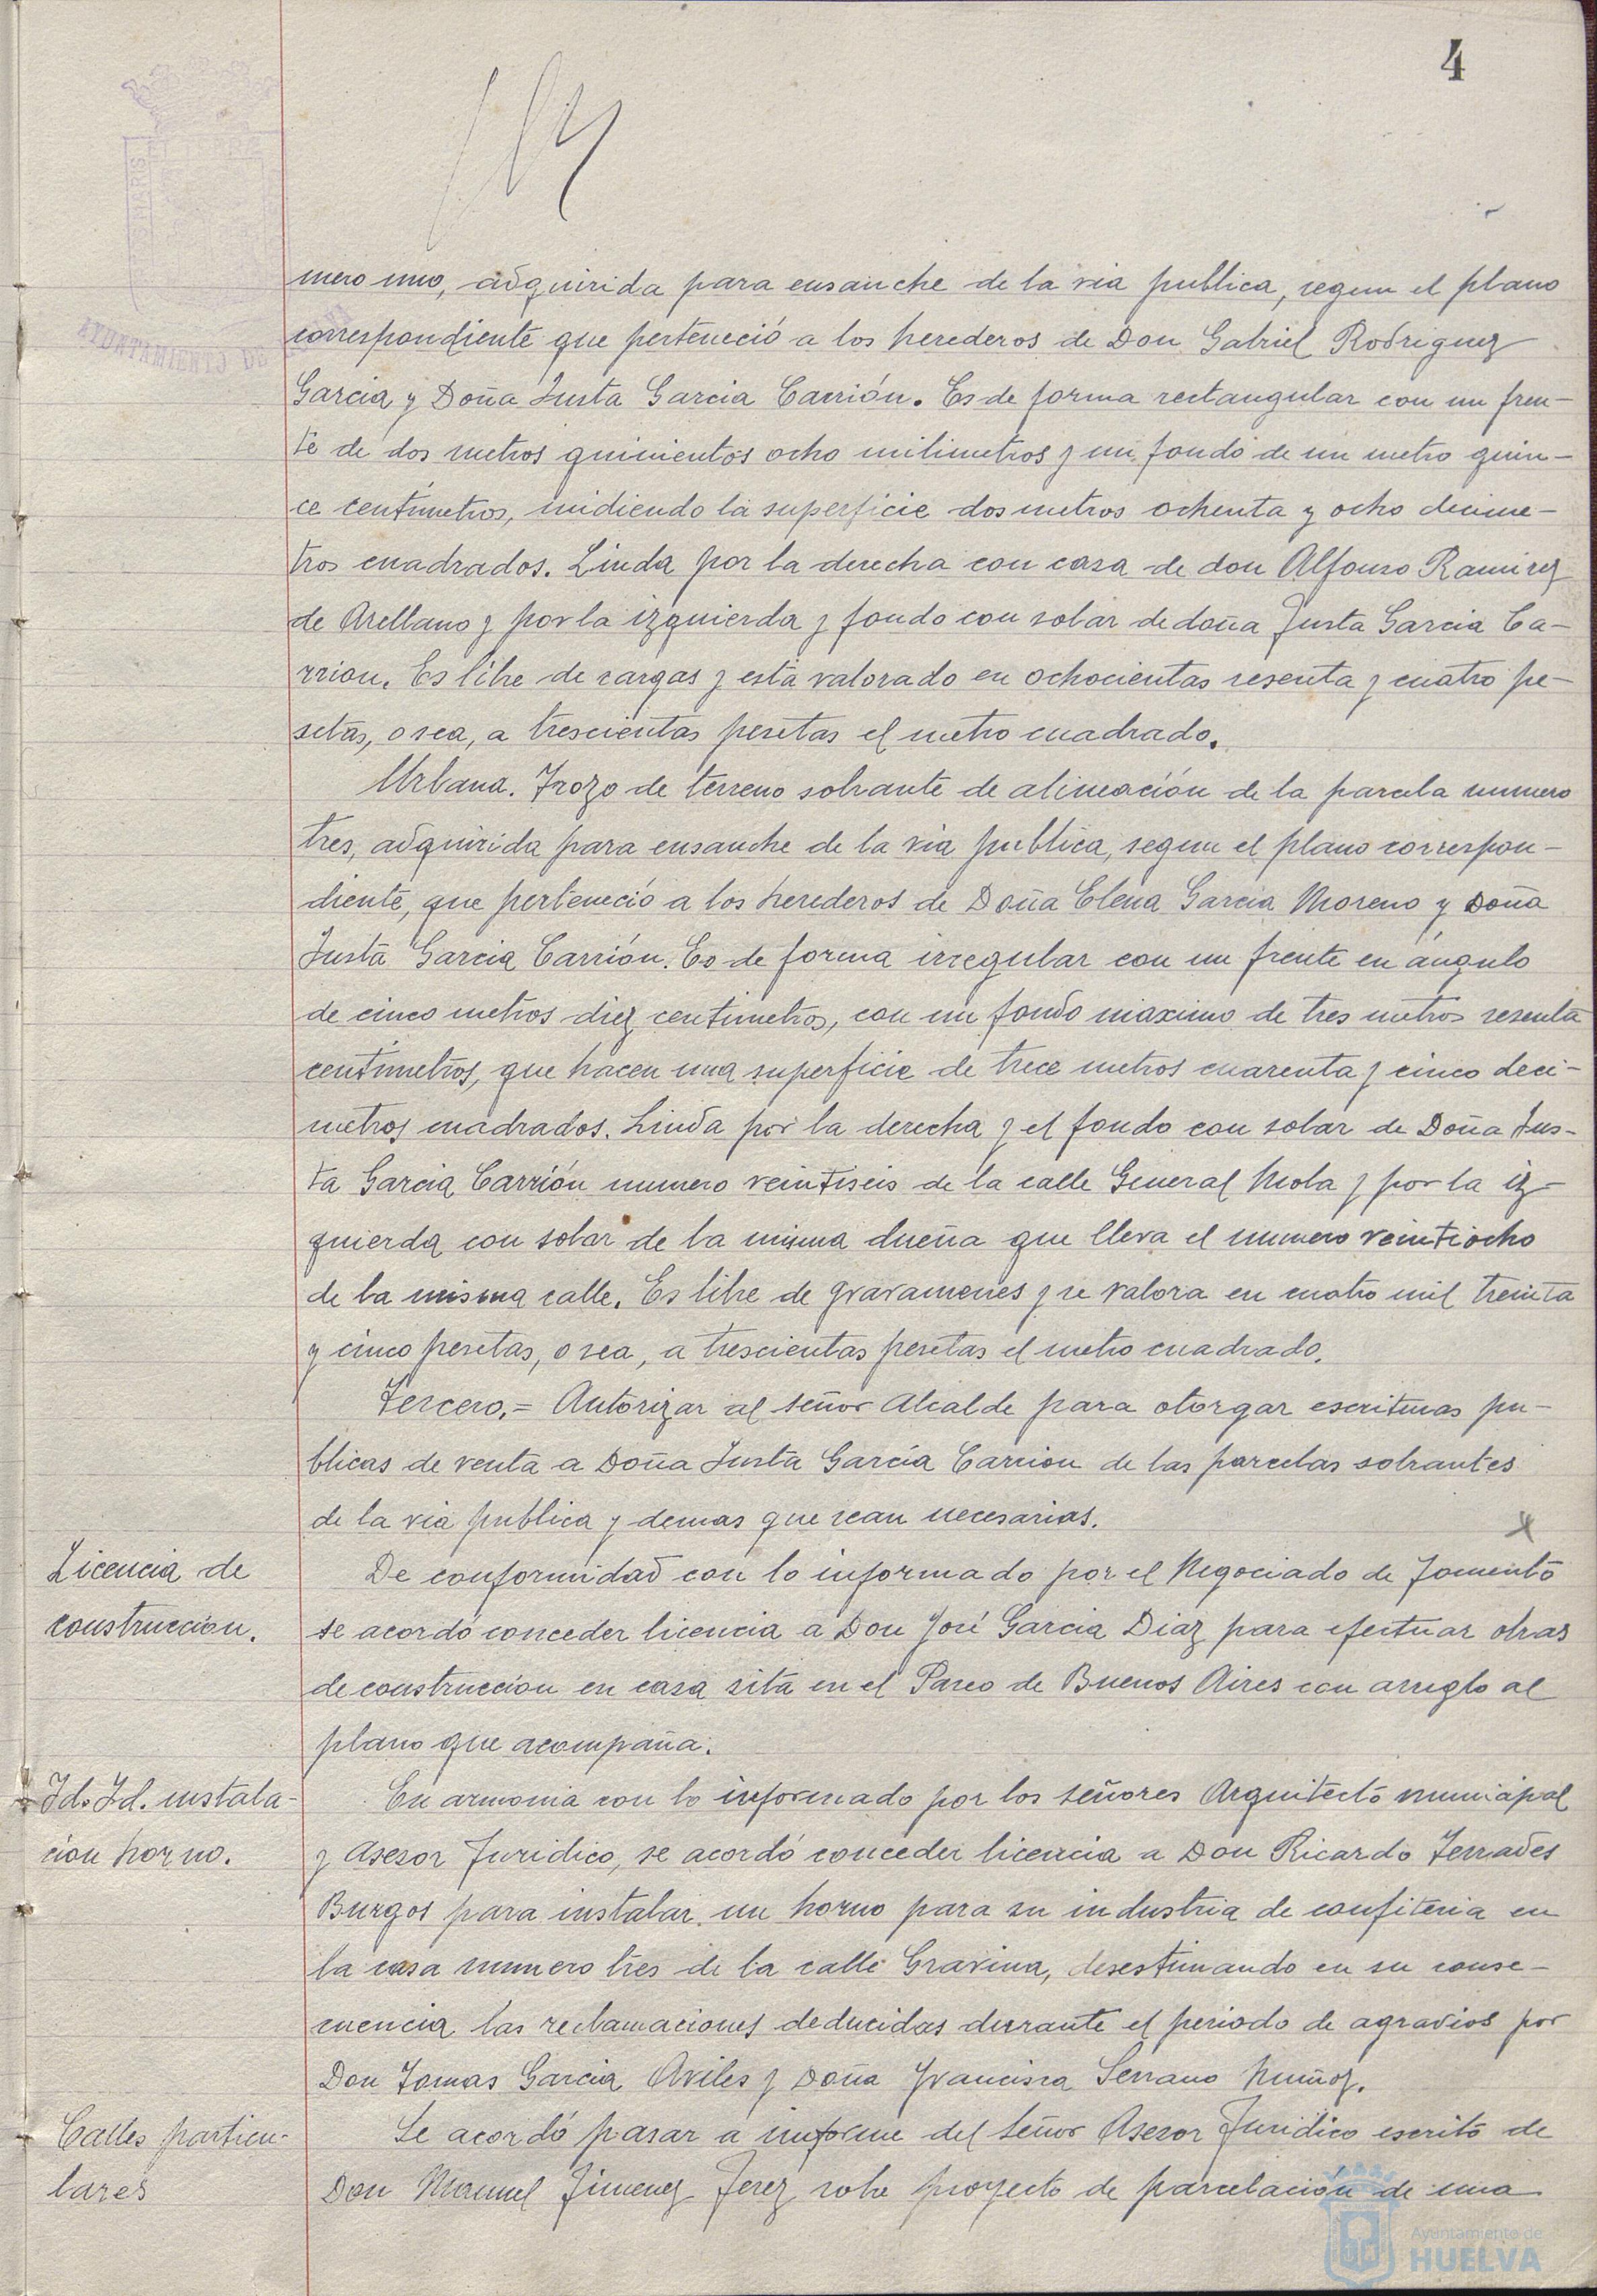 4
mero uno, adquirida para ensanche de la via publica, segun el plano
correspondiente que perteneció a los herederos de Don Gabriel Rodriguez
Garcia y Doña Justa Garcia Carrión. Es de forma rectangular con un fren-
te de dos metros quinientos ocho milimetros y un fondo de un metro quin-
ce centimetros, midiendo la superficie dos metros ochenta y ocho decime-
tros cuadrados. Linda por la derecha con casa de don Alfonso Ramirez
de Arellano y por la izquierda y fondo con solar de doña Justa Garcia Ca-
rrion. Es libre de cargas y está valorado en ochocientas sesenta y cuatro pe-
setas, o sea, a trescientas pesetas el metro cuadrado.
Urbana. Trozo de terreno sobrante de alineación de la parcela numero
tres, adquirida para ensanche de la via publica, segun el plano correspon-
diente, que perteneció a los herederos de Doña Elena Garcia Moreno y Doña
Justa Garcia Carrión. Es de forma irregular con un frente en ángulo
de cinco metros diez centimetros, con un fondo maximo de tres metros sesenta
centimetros, que hacen una superficie de trece metros cuarenta y cinco deci-
metros cuadrados. Linda por la derecha y el fondo con solar de Doña Jus-
ta Garcia Carrión numero veintiseis de la calle General Mola y por la iz-
quierda con solar de la misma dueña que lleva el numero veintiocho
de la misma calle. Es libre de gravamenes y se valora en cuatro mil treinta
y cinco pesetas, o sea, a trescientas pesetas el metro cuadrado.
Tercero.= Autorizar al señor Alcalde para otorgar escrituras pu-
blicas de venta a Doña Justa García Carrion de las parcelas sobrantes
de la via publica y demas que sean necesarias.
Licencia de
construccion.
De conformidad con lo informado por el Negociado de Fomento
se acordó conceder licencia a Don José Garcia Diaz para efectuar obras
de construccion en casa sita en el Paseo de Buenos Aires con arreglo al
plano que acompaña.
Id. Id. instala-
cion horno.
En armonia con lo informado por los señores Arquitecto municipal
y Asesor Juridico, se acordó conceder licencia a Don Ricardo Terrades
Burgos para instalar un horno para su industria de confiteria en
la casa numero tres de la calle Gravina, desestimando en su conse-
cuencia las reclamaciones deducidas durante el periodo de agravios por
Don Tomas Garcia Aviles y Doña Francisca Serrano Muñoz.
Calles particu-
lares
Se acordó pasar a informe del señor Asesor Juridico escrito de
Don Manuel Jimenez Jerez sobre proyecto de parcelación de una
Ayuntamiento de
HUELVA